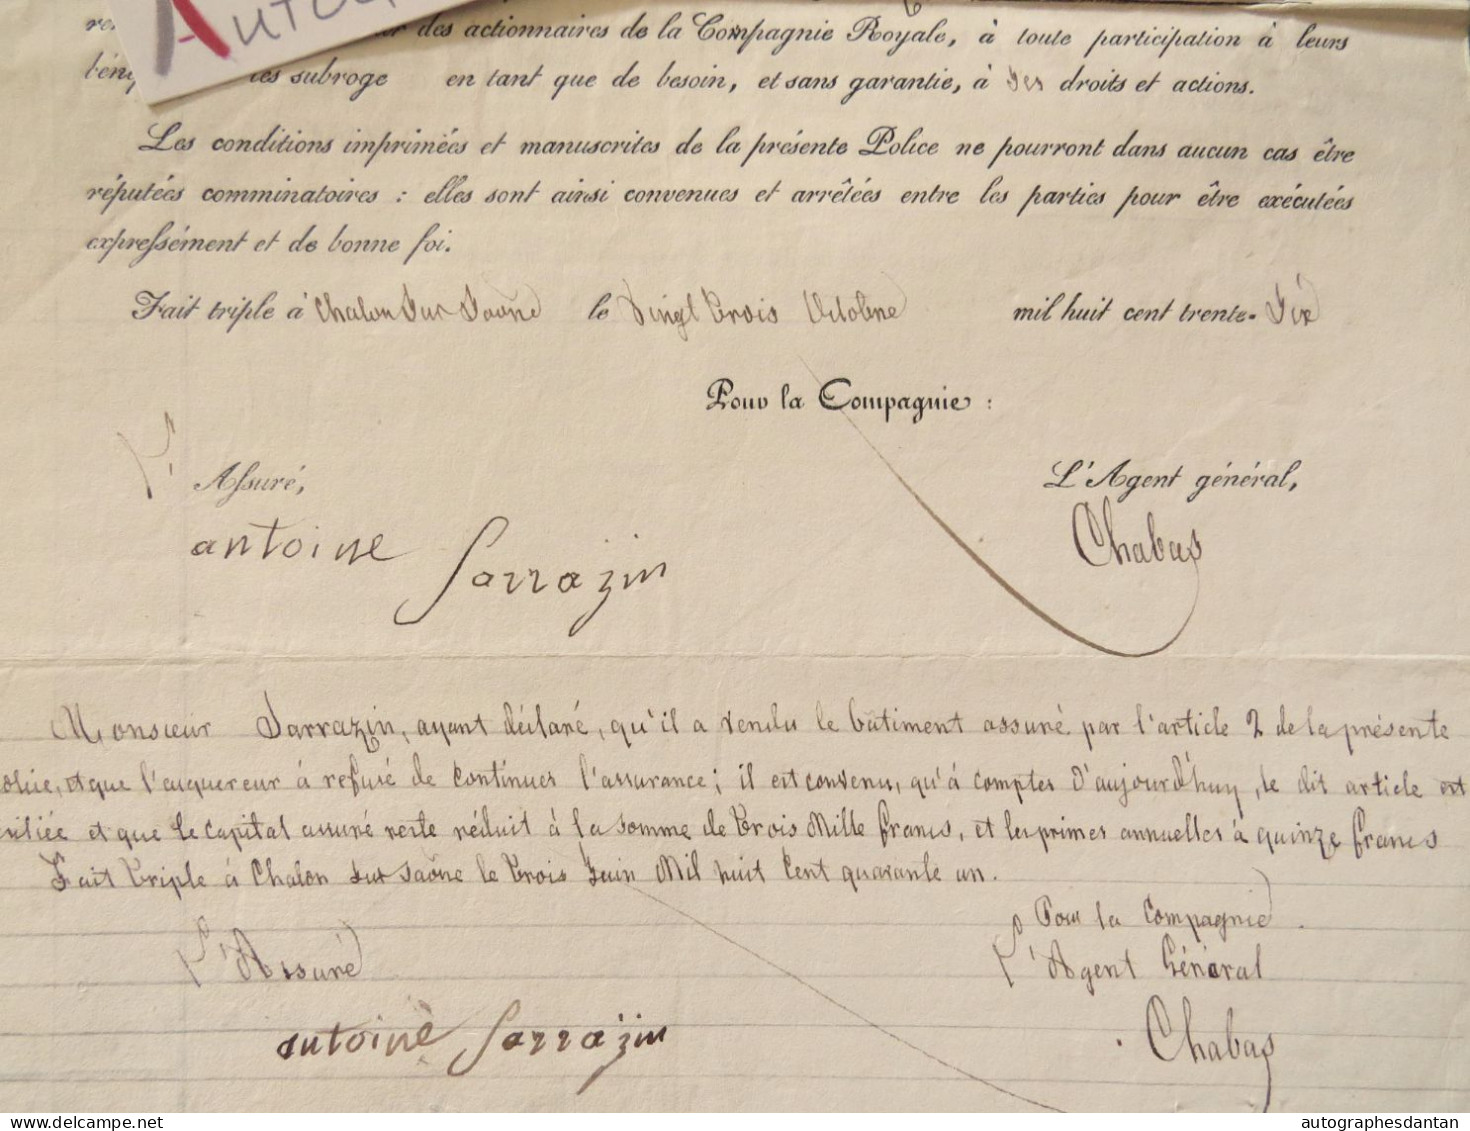 AUTOG
des actionnaires de la Compagnie Royale, à toute participation à leurs
subroge en tant que de besoin, et sans garantie, à ses droits et actions.
Les conditions imprimées et manuscrites de la présente Police ne pourront dans aucun cas être
réputées comminatoires : elles sont ainsi convenues et arrêtées entre les parties pour être exécutées
expressément et de bonne foi.
Fait triple à Chalon Sur Saône le Vingt trois Octobre mil huit cent trente-Six
Pour la Compagnie :
L' Assuré,
L'Agent général,
antoine Sarrazin
Chabas
Monsieur Sarrazin, ayant déclaré, qu'il a vendu le bâtiment assuré par l'article 2 de la présente
et que l'acquereur à refusé de continues l'assurance; il est convenu, qu'à comptes d'aujourd'huy, le dit article est
et que le Capital assuré reste réduit à la somme de trois Mille francs, et les primes annuelles à quinze francs
Fait triple à Chalon sur saône le trois Juin Mil huit Cent quarante un.
Pour la Compagnie
L'Assuré
L'Agent Général
antoine Sarrazin
Chabas
delcampe.net
autographesdantan